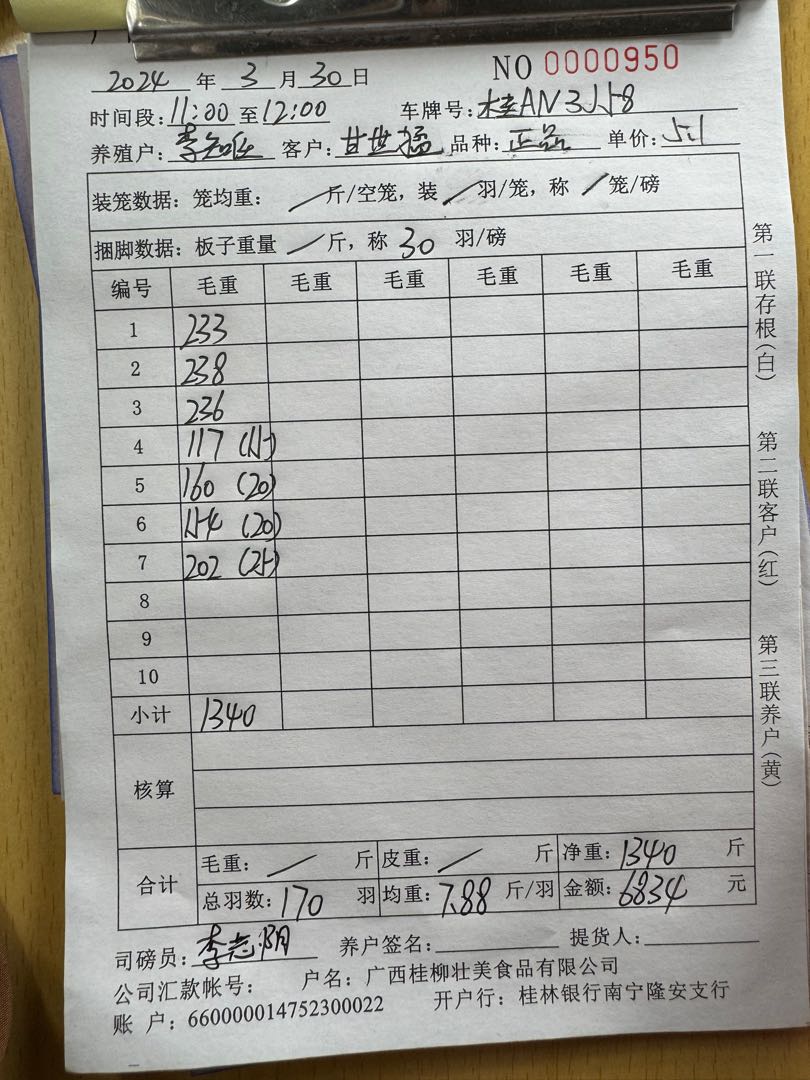 NO 0000950
2024 年 3 月 30 日
时间段: 11:00 至 12:00 车牌号: 桂AN3J58
养殖户: 李知 客户: 甘世猛 品种: 正品 单价: 5.1
装笼数据: 笼均重: / 斤/空笼, 装 / 羽/笼, 称 / 笼/磅
捆脚数据: 板子重量 / 斤, 称 30 羽/磅
编号 毛重 毛重 毛重 毛重 毛重 毛重
1 233
2 238
3 236
4 117 (15)
5 160 (20)
6 154 (20)
7 202 (25)
8
9
10
小计 1340
核算
合计 毛重: / 斤 皮重: / 斤 净重: 1340 斤
总羽数: 170 羽 均重: 7.88 斤/羽 金额: 6834 元
司磅员: 李志阴 养户签名: 提货人:
公司汇款帐号: 户名: 广西桂柳壮美食品有限公司
账 户: 660000014752300022 开户行: 桂林银行南宁隆安支行
第一联存根(白) 第二联客户(红) 第三联养户(黄)